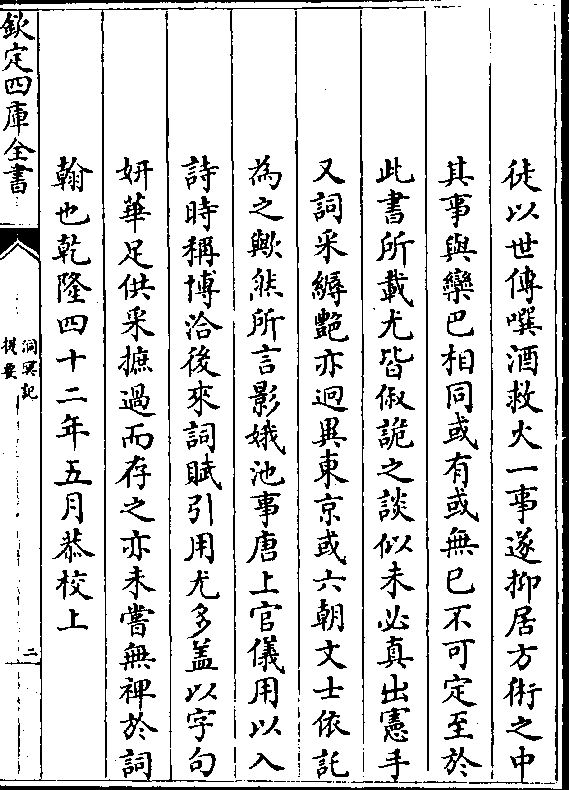 徒以世傳噀酒救火一事遂抑居方術之中
其事與欒巴相同或有或無已不可定至於
此書所載尤皆俶詭之談似未必真出憲手
又詞采縟艷亦迥異東京或六朝文士依託
為之歟然所言影娥池事唐上官儀用以入
詩時稱博洽後來詞賦引用尤多蓋以字句
妍華足供采摭過而存之亦未嘗無裨於詞
翰也乾隆四十二年五月恭校上
欽定四庫全書
洞冥記
提要
二